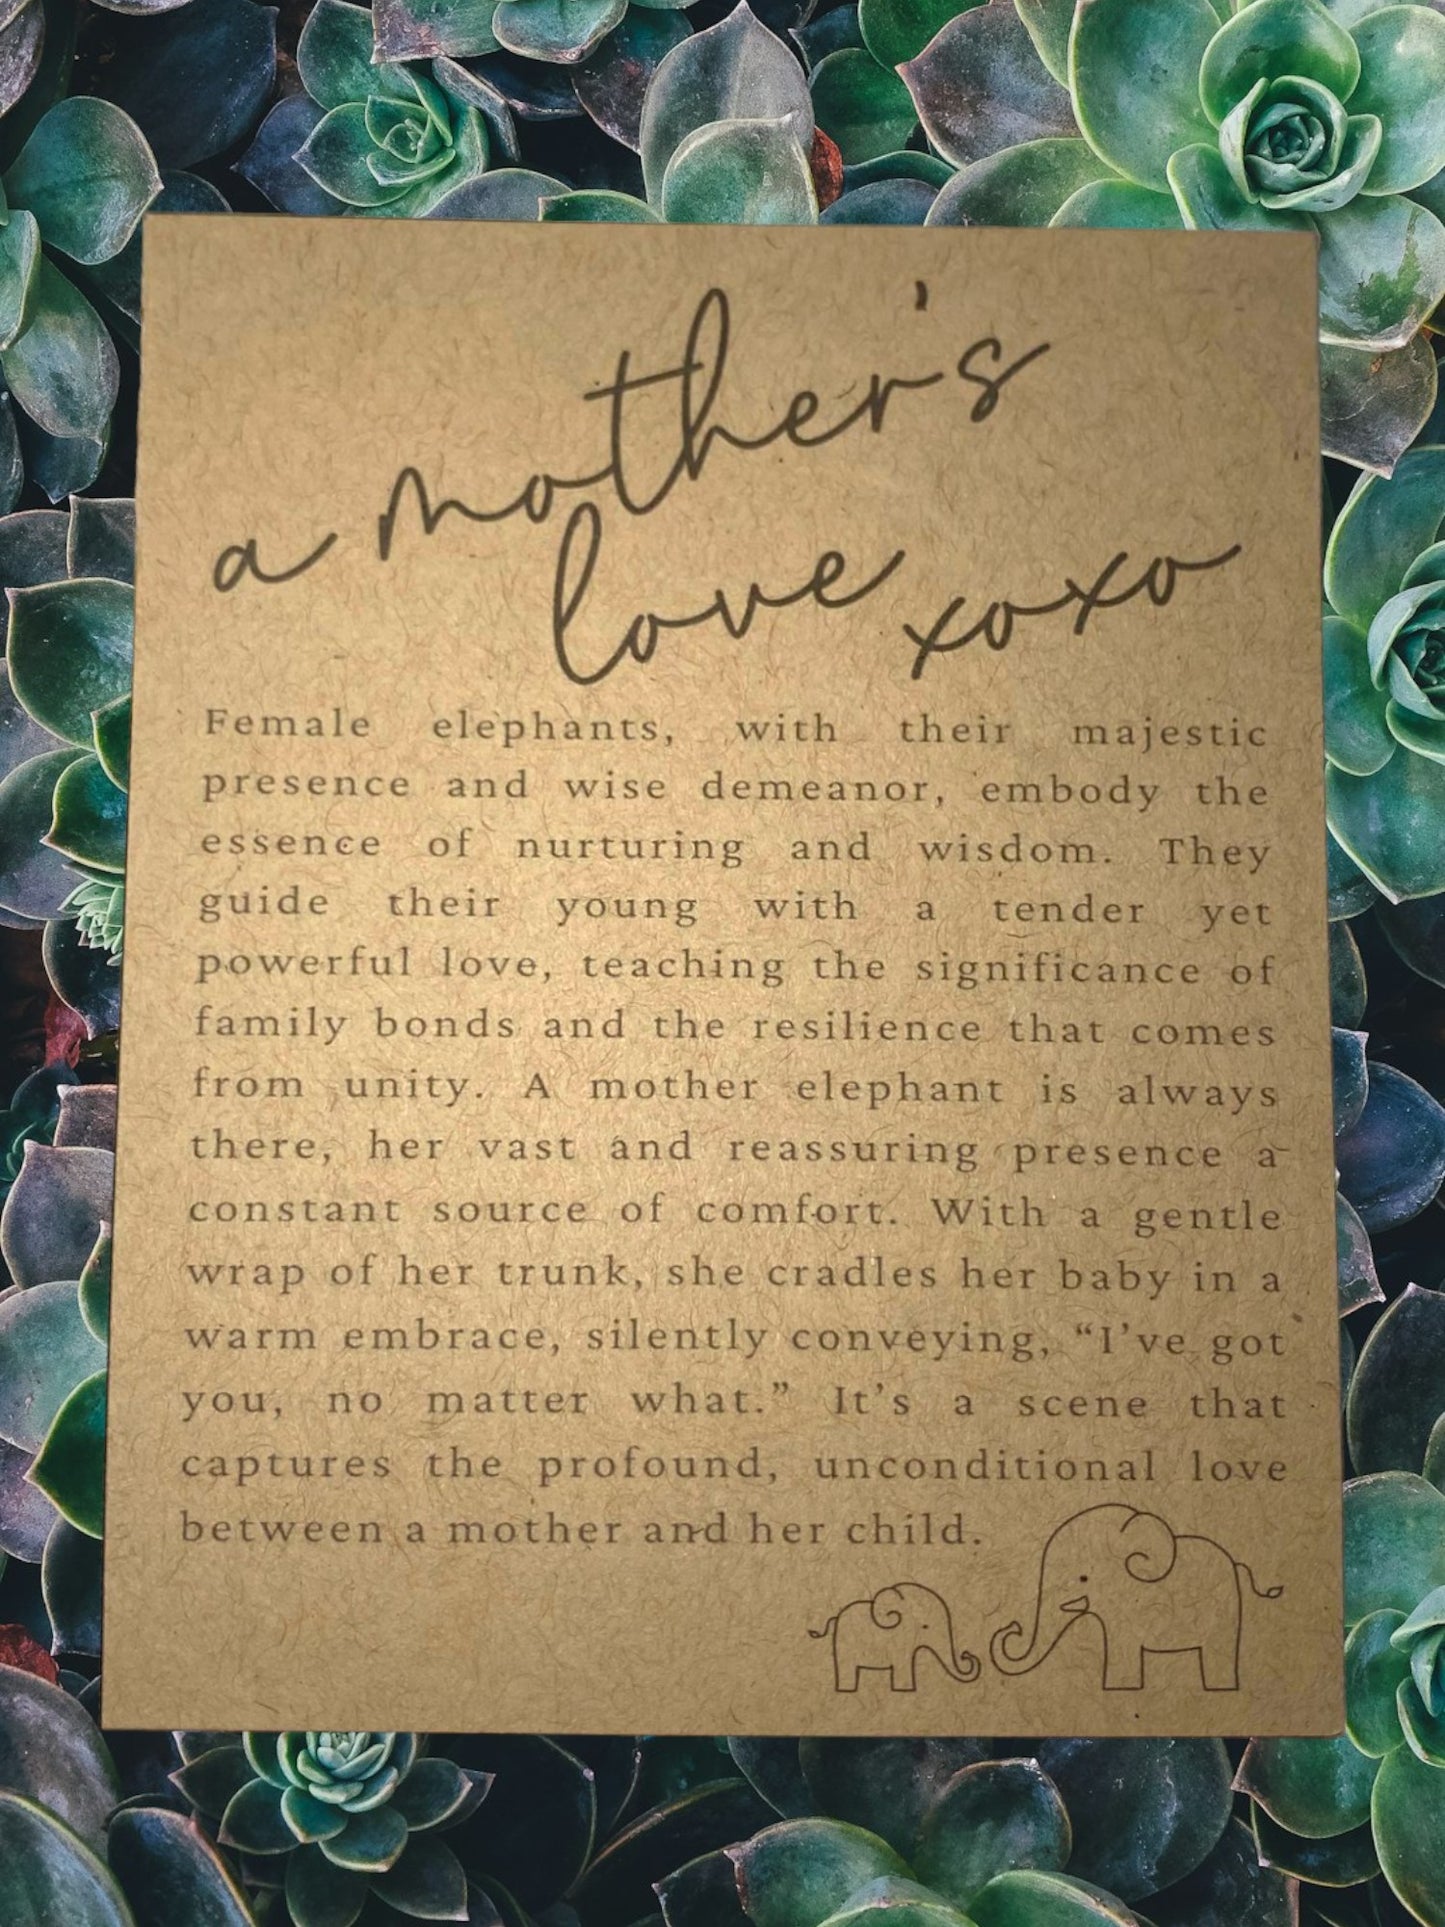 a mother's
love xoxo
Female elephants, with their majestic
presence and wise demeanor, embody the
essence of nurturing and wisdom. They
guide their young with a tender yet
powerful love, teaching the significance of
family bonds and the resilience that comes
from unity. A mother elephant is always
there, her vast and reassuring presence a
constant source of comfort. With a gentle
wrap of her trunk, she cradles her baby in a
warm embrace, silently conveying, “I’ve got
you, no matter what.” It’s a scene that
captures the profound, unconditional love
between a mother and her child.